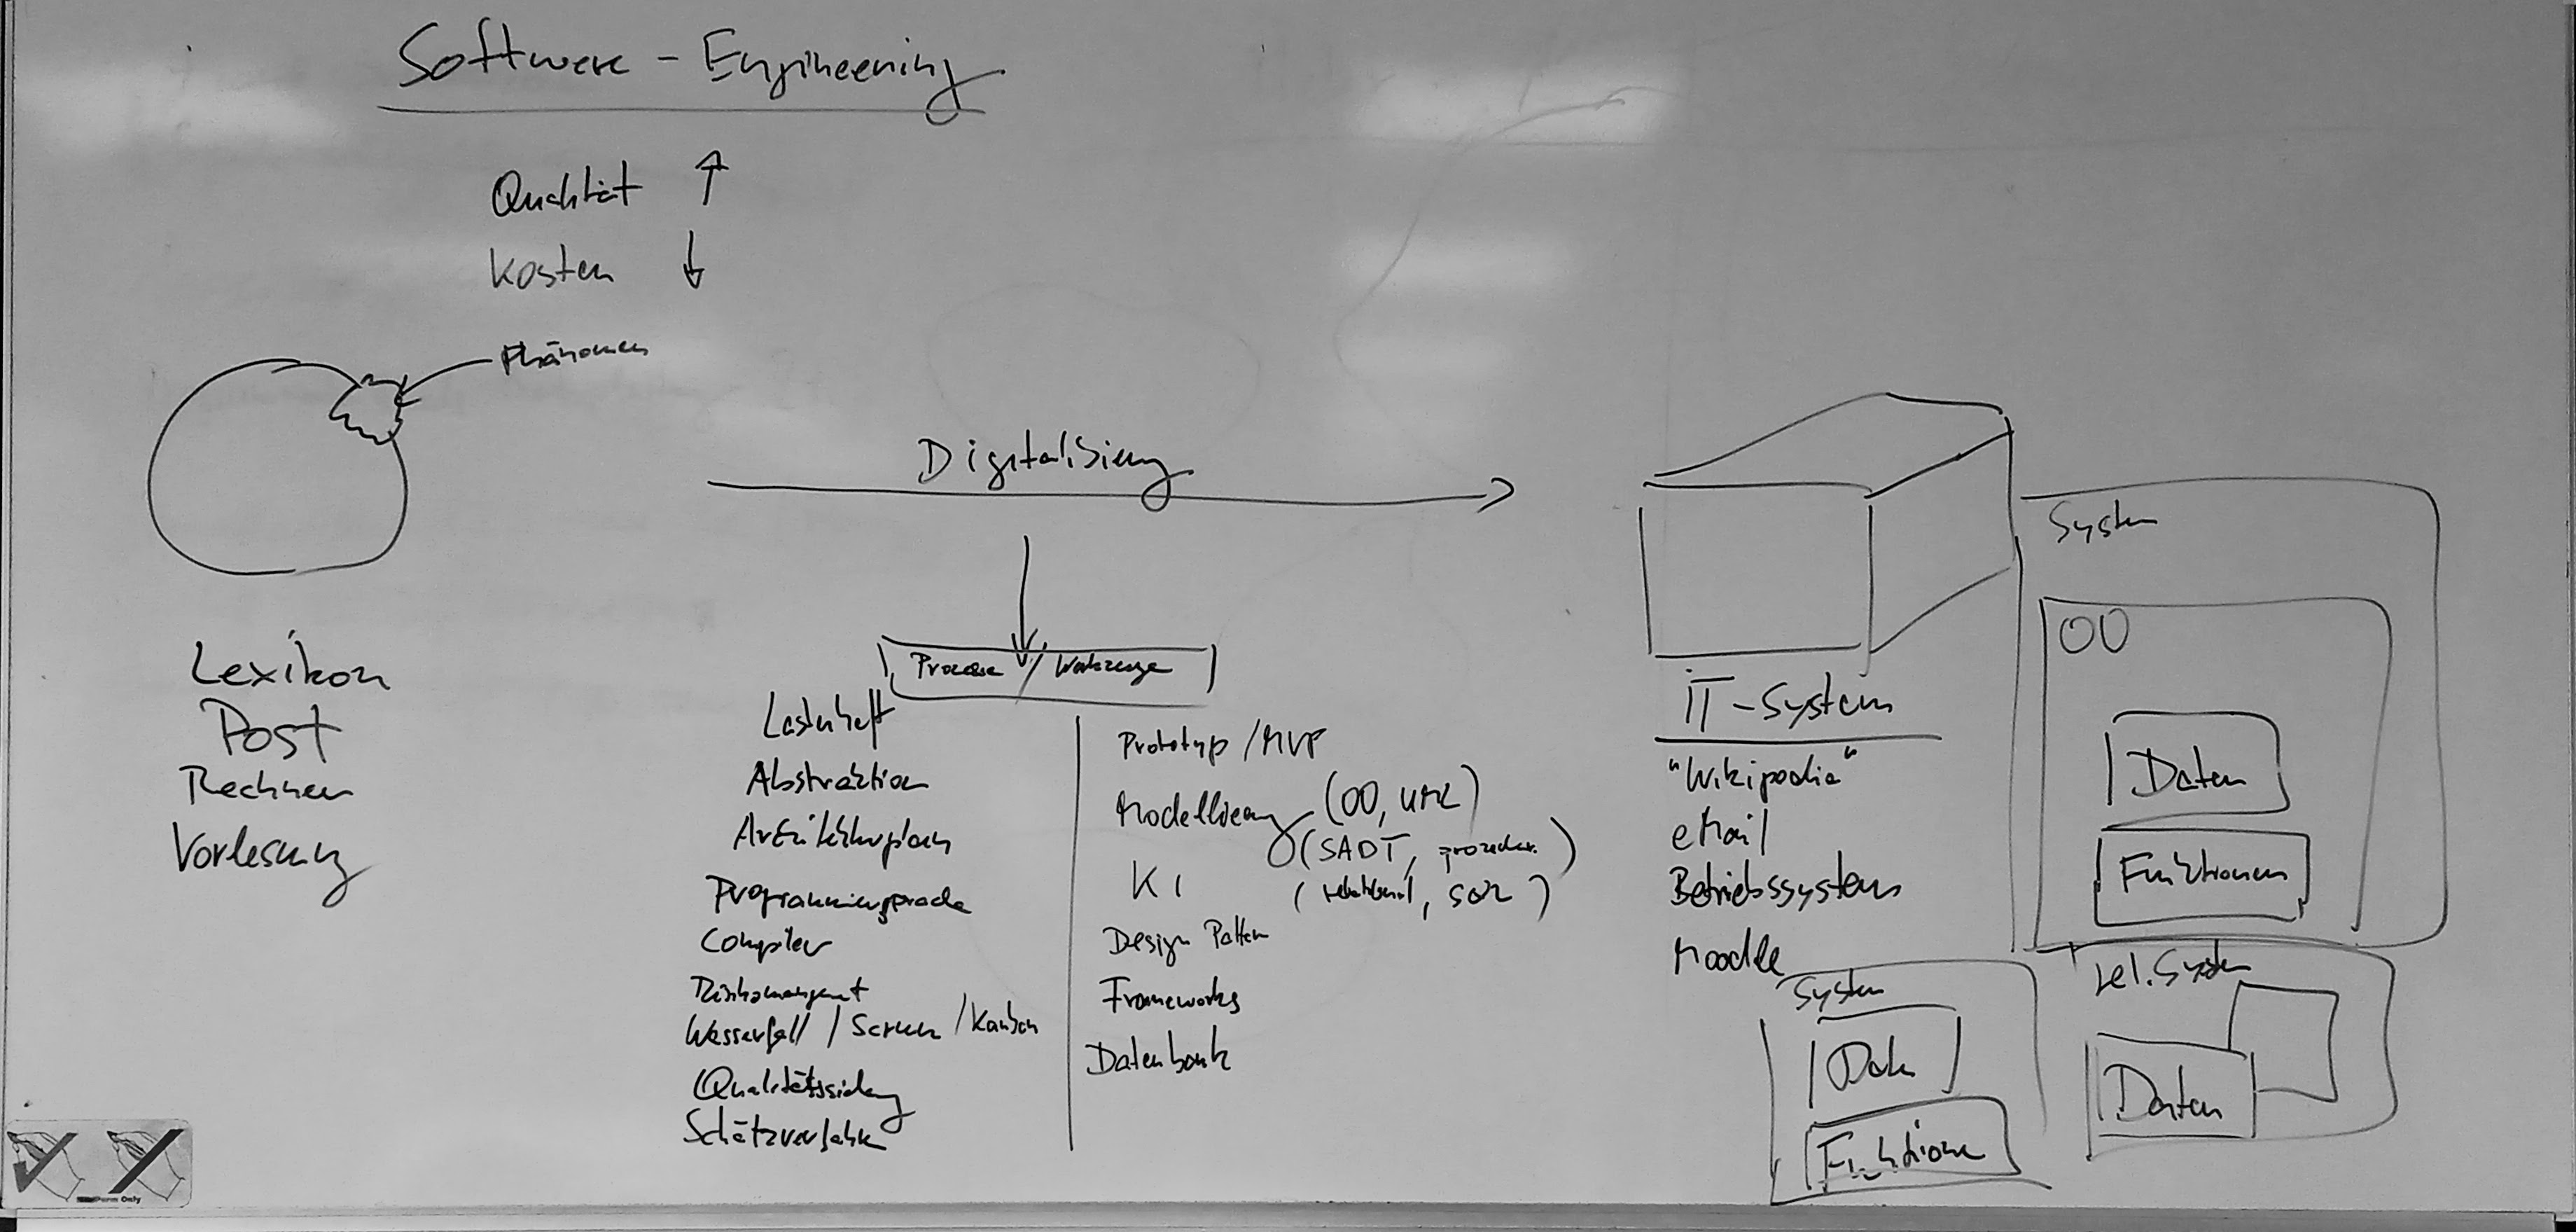 Software - Engineering
Qualität ↑
Kosten ↓
Phänomen
Digitalisierung
Prozesse / Werkzeuge
Lexikon
Post
Rechnen
Vorlesung
Lastenheft
Abstraktion
Architekturplan
Programmiersprache
Compiler
Risikomanagement
Wasserfall / Scrum / Kanban
Qualitätssicherung
Schätzverfahren
Prototyp / MVP
Modellierung (OO, UML)
(SADT, prozedur.)
(relational, SQL)
KI
Design Pattern
Frameworks
Datenbank
IT-System
"Wikipedia"
eMail
Betriebssystem
Moodle
System
OO
Daten
Funktionen
System
Daten
Funktionen
rel. System
Daten
Only